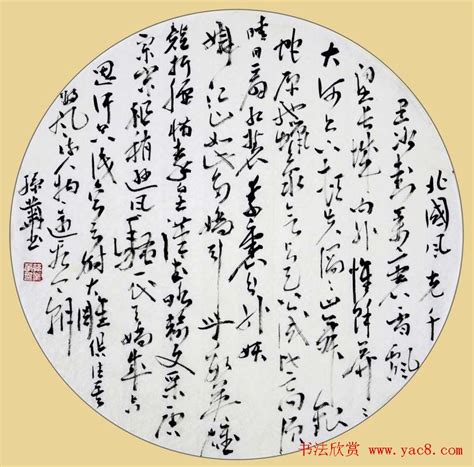 北國風光千
里冰封万里雪飘
望长城内外惟余莽莽
大河上下顿失滔滔山舞银
蛇原驰蜡象欲与天公试比高须
晴日看红装素裹分外妖
娆江山如此多娇引无数英雄
竞折腰惜秦皇汉武略输文采唐
宗宋祖稍逊风骚一代天骄成吉
思汗只识弯弓射大雕俱往矣
数风流人物还看今朝
书法欣赏
http://www.yac8.com